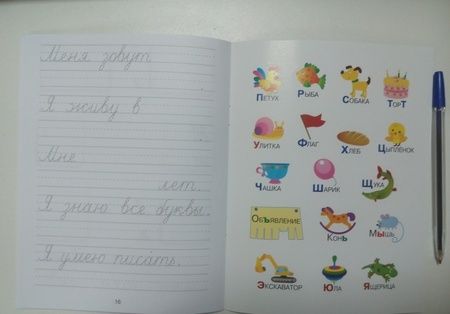 Меня зовут
Я живу в
Мне
лет.
Я знаю все буквы.
Я умею писать.
16
Петух Рыба Собака Торт
Улитка Флаг Хлеб Цыплёнок
Чашка Шарик Щука
Объявление Конь Мышь
Экскаватор Юла Ящерица